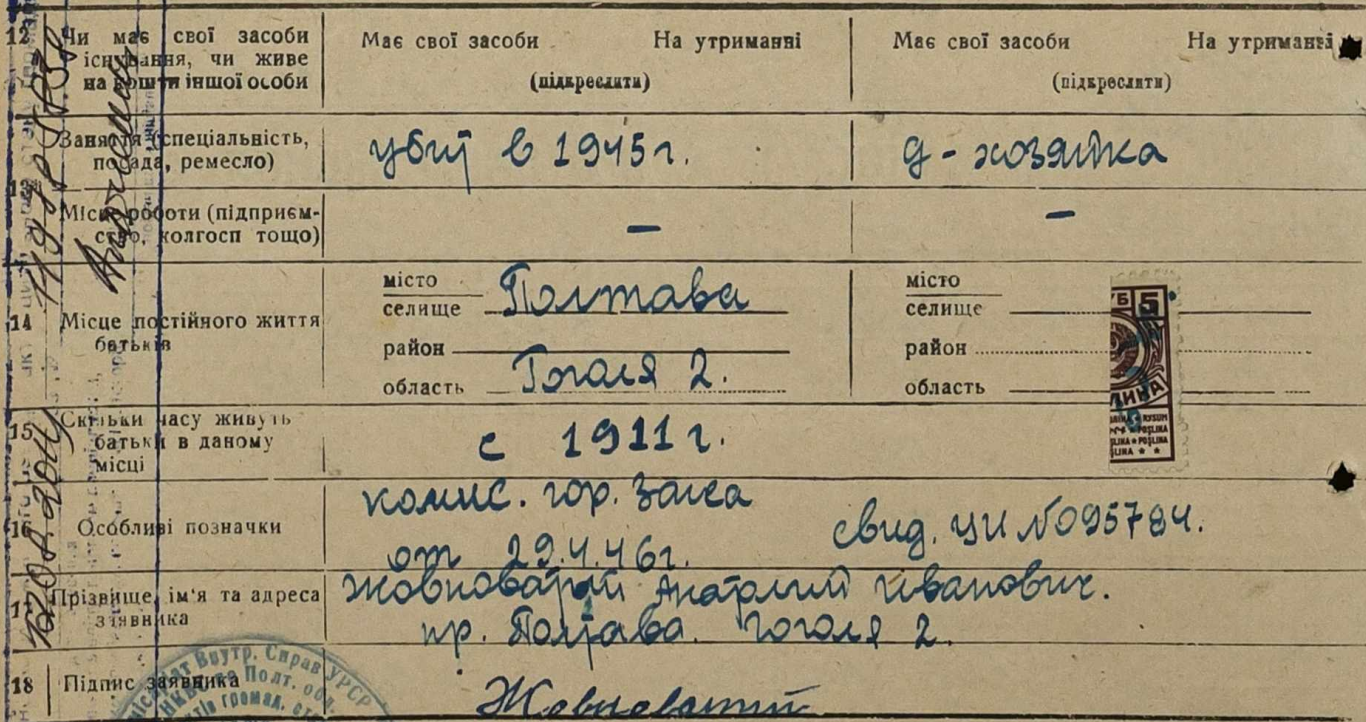 12 Чи має свої засоби
існування, чи живе
на кошти іншої особи
Має свої засоби На утриманні
(підкреслити)
Має свої засоби На утриманні
(підкреслити)
13 Заняття (спеціальність,
посада, ремесло)
убит в 1945 г.
д-хозяйка
Місце роботи (підприєм-
ство, колгосп тощо)
—
—
14 Місце постійного життя
батьків
місто
селище Полтава
район
область Гоголя 2.
місто
селище
район
область
УБ 5
15 Скільки часу живуть
батьки в даному
місці
с 1911 г.
16 Особливі позначки
комис. гор. загса
от 29.4.46 г.
свид. УИ № 095784.
17 Прізвище, ім'я та адреса
заявника
Жовноватий Анатолий Иванович.
пр. Полтава. Гоголя 2.
18 Підпис заявника
Жовноватий
Внутр. Справ УРСР
НКВС по Полт. обл.